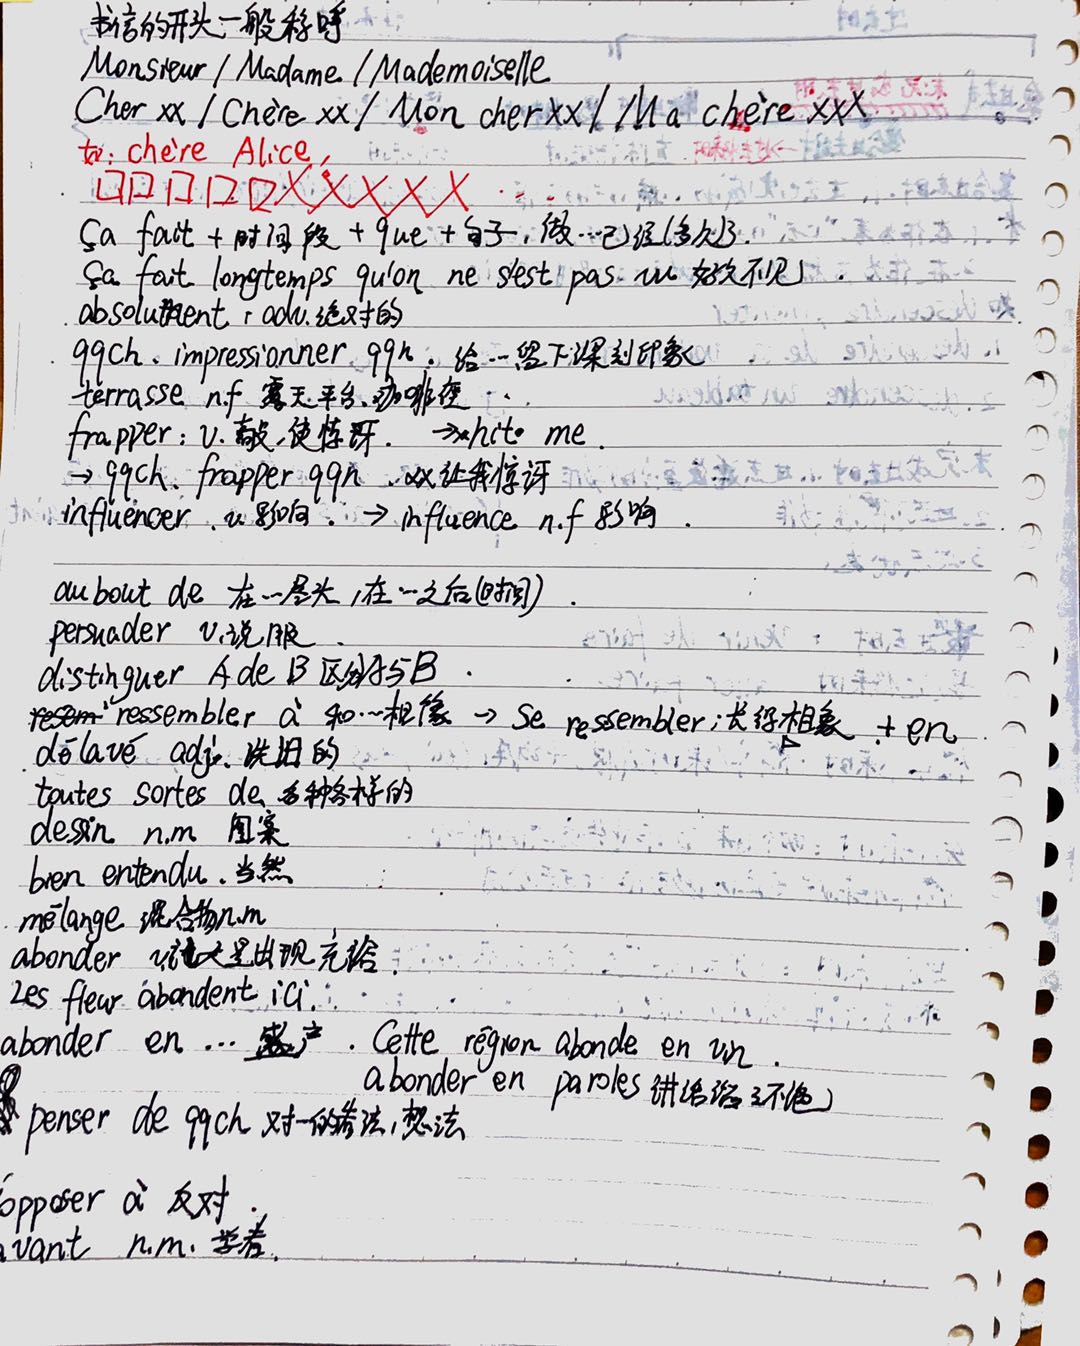 书信的开头一般称呼
Monsieur / Madame / Mademoiselle
Cher xx / Chère xx / Mon cher xx / Ma chère xxx
chère Alice,
口口口口口XXXXX
Ça fait + 时间段 + que + 句子, 做…已经(多久)了.
Ça fait longtemps qu'on ne s'est pas vu 好久不见
absolument : adv. 绝对的
qqch. impressionner qqn. 给…留下深刻印象
terrasse n.f 露天平台, 咖啡座
frapper : v. 敲, 使惊讶. → hit me.
→ qqch. frapper qqn xx让我惊讶
influencer v. 影响. → influence n.f 影响.
au bout de 在…尽头, 在…之后(时间).
persuader v. 说服
distinguer A de B 区分A与B.
ressembler à 和…相像 → se ressembler; 长得相象 + en
délavé adj. 洗旧的
toutes sortes de 各种各样的
dessin n.m 图案
bien entendu. 当然
mélange 混合物 n.m
abonder 大量出现 充裕
Les fleur abondent ici.
abonder en … 盛产. Cette région abonde en vin.
abonder en paroles 讲话滔滔不绝
penser de qqch 对…的看法, 想法
opposer à 反对.
avant n.m. 学者.